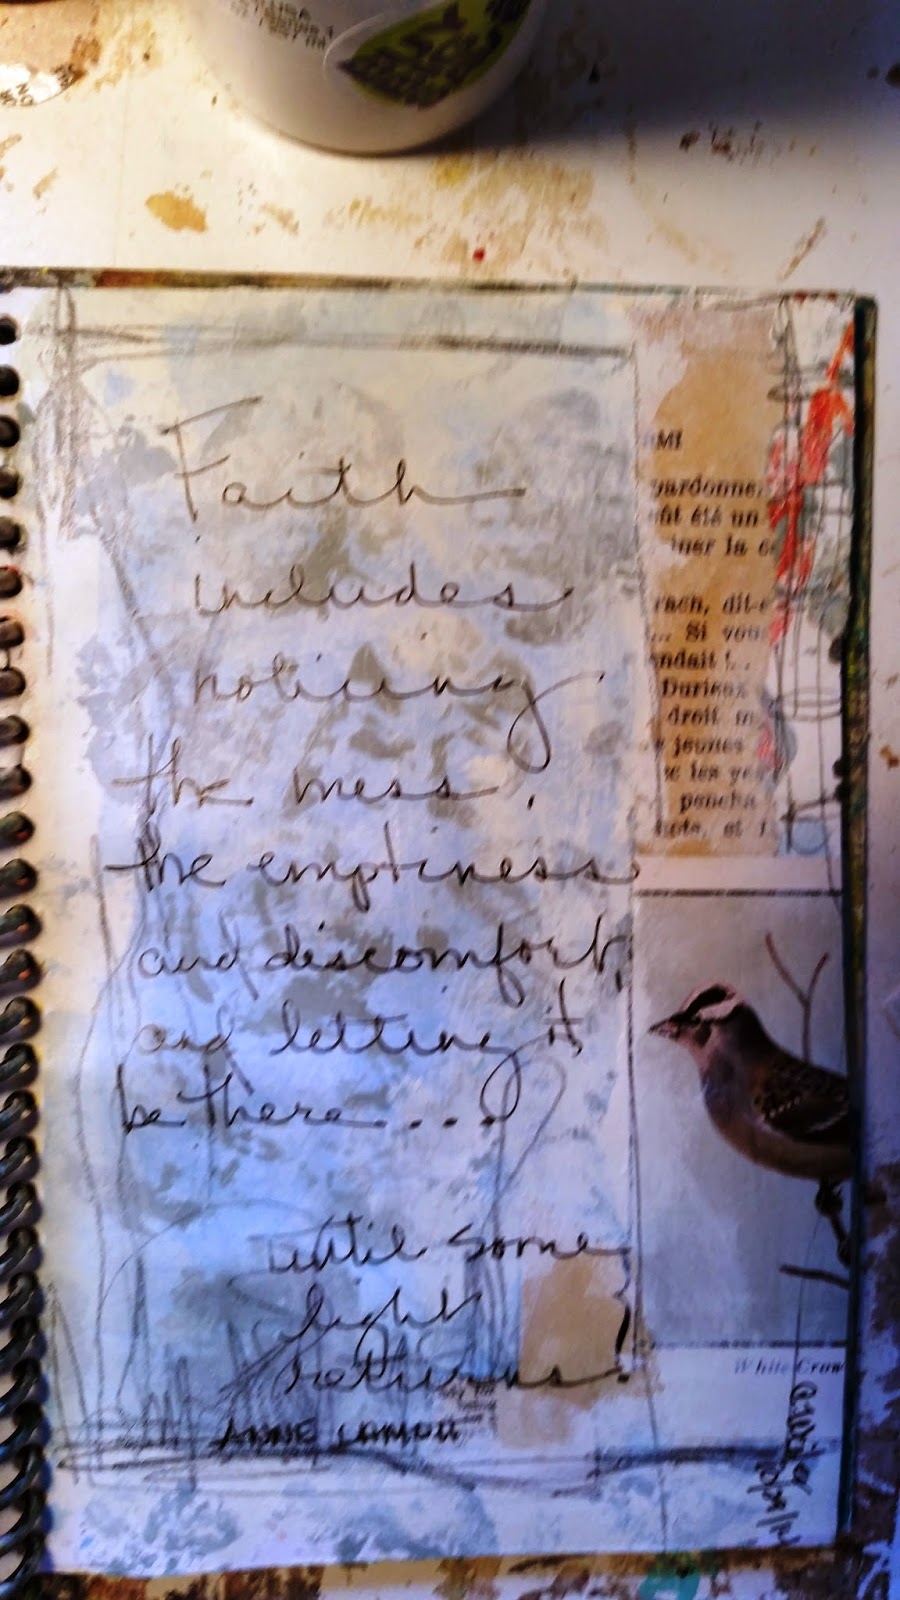 Faith
includes
noticing
the mess,
the emptiness
and discomfort,
and letting it
be there....
until some
light
returns.
ANNE LAMOTT
MI
pardonne,
ût été un
iner la c
rach, dit-
... Si vou
ndait !..
Durieux
droit m
jeunes
les ye
pencha
et
White Crow